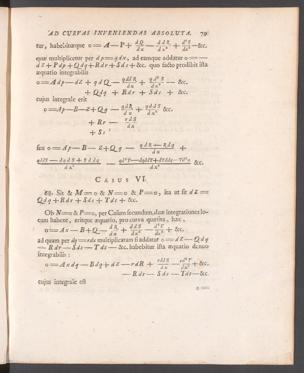 AD CURVAS INVENIENDAS ABSOLUTA. 79
tur, habebiturque o = A — P + dQ/dx — ddR/dx² + d³S/dx³ — &c.
quæ multiplicetur per dp = qdx, ad eamque addatur o = —
dZ + Pdp + Qdq + Rdr + Sds + &c. quo facto prodibit ista
æquatio integrabilis
o = Adp — dZ + qdQ — qddR/dx + qd³S/dx² — &c.
+ Qdq + Rdr + Sds + &c.
cujus integrale erit
o = Ap — B — Z + Qq — qdR/dx + qddS/dx²  &c.
+ Rr — rdS/dx
+ Ss
seu o = Ap — B — Z + Qq —
CASUS VI.
Sit & M = o & N = o & P = o, ita ut sit dZ =
Qdq + Rdr + Sds + Tdt + &c.
Ob N = o & P = o, per Casum secundum, duæ integrationes lo-
cum habent, eritque æquatio, pro curva quæsita, hæc,
o = Ax — B + Q — dR/dx + ddS/dx² — d³T/dx³ + &c.
ad quam per dq = rdx multiplicatam si addatur o = dZ — Qdq
— Rdr — Sds — Tdt — &c. habebitur ista æquatio denuo
integrabilis:
o = Axdq — Bdq + dZ — rdR + rddS/dx — rd³T/dx² + &c.
— Rdr — Sds — Tdt — &c.
cujus integrale est
o =